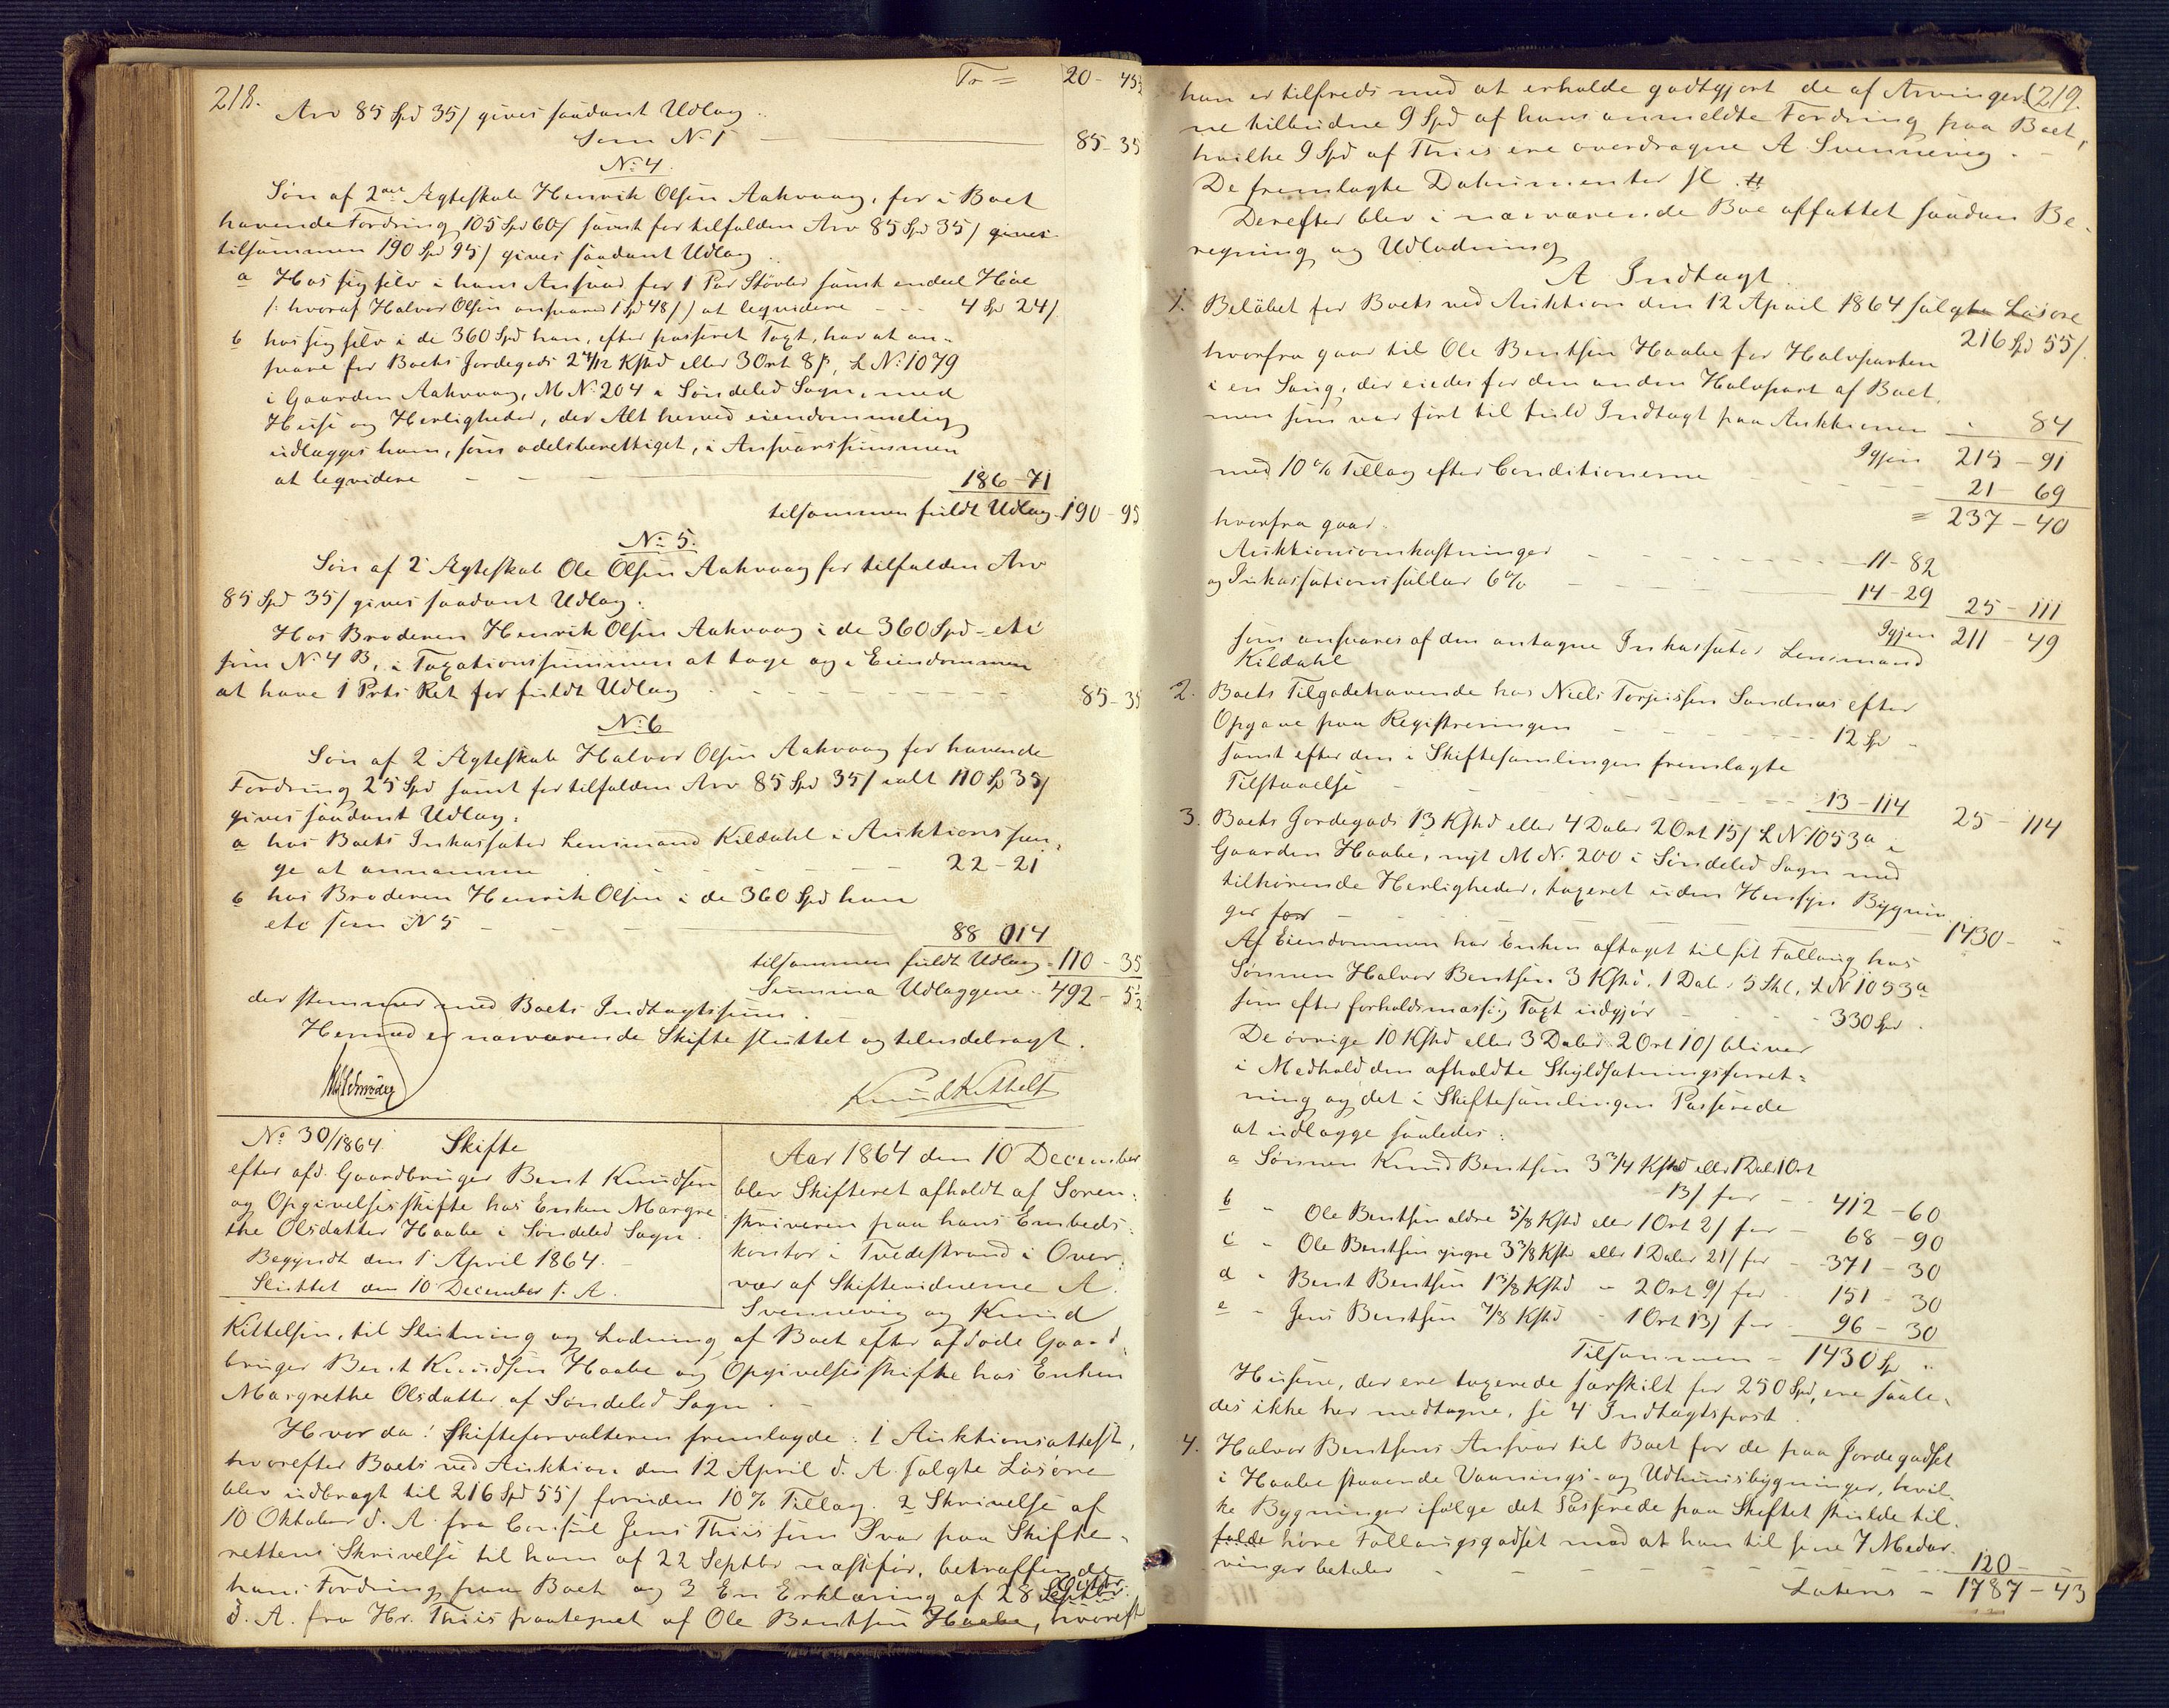 218.
Tr = 20 - 45½
Arv 85 Spd 35/ gives saadant Udlæg:
Som No 1 85 - 35
No 4.
Søn af 2det Ægteskab Henrik Olsen Aakvaag, for i Boet
havende Fordring 105 Spd 60/ samt for tilfalden Arv 85 Spd 35/ gives
tilsammen 190 Spd 95/ gives saadant Udlæg:
a Hos sig selv i hans Ansvar for 1 Par Støvler samt endeel Høe
/: hvoraf Halvor Olsen ansvarer 1 Spd 48/:/ at leqvidere - - - 4 Sp 24/
b hos sig selv i de 360 Spd han, efter passeret Taxt, har at an-
svare for Boets Jordegods 2 4/12 Kshd eller 3 Ort 8 β, L No 1079
i Gaarden Aakvaag, M No 204 i Søndeled Sogn, med
Huse og Herligheder, der Alt herved eiendommelig
udlægges ham, som odelsberettiget, i Ansvarssummen
at leqvidere - - - 186 - 71
tilsammen fuldt Udlæg 190 - 95
No 5.
Søn af 2 Ægteskab Ole Olsen Aakvaag for tilfalden Arv
85 Spd 35/ gives saadant Udlæg:
Hos Broderen Henrik Olsen Aakvaag i de 360 Spd - etc
som No 4 B, i Taxationssummen at tage og i Eiendommen
at have 1 Prts Ret for fuldt Udlæg - - - 85 - 35
No 6
Søn af 2 Ægteskab Halvor Olsen Aakvaag for havende
Fordring 25 Spd samt for tilfalden Arv 85 Spd 35/ ialt 110 Sp 35/
gives saadant Udlæg:
a hos Boets Inkassator Lensmand Kildahl i Auktionspen-
ge at annamme - - - 22 - 21
b hos Broderen Henrik Olsen i de 360 Spd han
etc som No 5 - - - 88 014
tilsammen fuldt Udlæg 110 - 35
Summa Udlæggene 492 - 5½
der stemmer med Boets Indtægtssum.
Hermed er nærværende Skifte sluttet og tilendebragt.
Knud Kittels
No 30/1864. Skifte
efter afd. Gaardbruger Bent Knudsen
og Opgivelsesskifte hos Enken Margre-
the Olsdatter Haabe i Søndeled Sogn.
Begyndt den 1 April 1864.
Sluttet den 10 December s. A.
Aar 1864 den 10 December
blev Skifteret afholdt af Soren-
skriveren paa hans Embeds-
kontor i Tvedestrand i Over-
vær af Skiftevidnerne A.
Svennevig og Knud
Kittelsen, til Slutning og Lodning af Boet efter afdøde Gaard-
bruger Bent Knudsen Haabe og Opgivelsesskifte hos Enken
Margrethe Olsdatter af Søndeled Sogn.
Hvor da: Skifteforvalteren fremlagde: 1 Auktionsattest,
hvorefter Boets ved Auktion den 12 April d. A. solgte Løsøre
blev udbragt til 216 Spd 55/ foruden 10% Tillæg. 2 Skrivelse af
10 Oktober d. A. fra Consul Jens Thiis som Svar paa Skifte-
rettens Skrivelse til ham af 22 Septbr næstfør, betræffende
hans Fordring paa Boet og 3 En Erklæring af 28 Septbr Octbr
d. A. fra Hr. Thiis paategnet af Ole Bentsen Haabe, hvoreft
219.
han er tilfreds med at erholde godtgjort de af Arvinger-
ne tilbudne 9 Spd af hans anmeldte Fordring paa Boet,
hvilke 9 Spd af Thiis ere overdragne A. Svennevig. -
De fremlagte Dokumenter fl. #
Derefter blev i nærværende Boe affattet saadan Be-
regning og Udlodning
A Indtægt.
1. Beløbet for Boets ved Auktion den 12 April 1864 solgte Løsøre
216 Spd 55/.
hvorfra gaar til Ole Bentsen Haabe for Halvparten
i en Seng, der eiedes for den anden Halvpart af Boet,
men som var ført til fuld Indtægt paa Auktionen " 84
Igjen 215 - 91
med 10% Tillæg efter Conditionerne - - - 21 - 69
= 237 - 40
hvorfra gaar
Auktionsomkostninger - - - 11 - 82
og Inkassationssallær 6% - - - 14 - 29 25 - 111
Igjen 211 - 49
som ansvares af den antagne Inkassator Lensmand
Kildahl
2. Boets Tilgodehavende hos Niels Terjessen Sandnæs efter
Opgave paa Registreringen - - - 12 Sp -
samt efter den i Skiftesamlingen fremlagte
Tilstaaelse - - - 13 - 114 25 - 114
3. Boets Jordegods 13 Kshd eller 4 Daler 2 Ort 15/ L No 1053a i
Gaarden Haabe, nyt M No 200 i Søndeled Sogn med
tilhørende Herligheder, taxeret uden Hensyn Bygnin-
ger for - - - 1430 - "
Af Eiendommen har Enken aftaget til sit Follaug hos
Sønnen Halvor Bentsen 3 Kshd. 1 Dal. 5 Skl. L No 1053a
som efter forholdsmæssig Taxt udgjør - - 330 Spd.
De øvrige 10 Kshd eller 3 Daler 2 Ort 10/ bliver
i Medhold den afholdte Skyldsætningsforret-
ning og det i Skiftesamlingen Passerede
at udlægge saaledes:
a Sønnen Knud Bentsen 3 3/4 Kshd eller 1 Daler 1 Ort
13/ for - - 412 - 60
b " Ole Bentsen ældre 5/8 Kshd eller 1 Ort 2/ for - 68 - 90
c " Ole Bentsen yngre 3 3/8 Kshd eller 1 Daler 21/ for - 371 - 30
d " Bent Bentsen 1 3/8 Kshd " 2 Ort 9/ for - 151 - 30
e " Jens Bentsen 7/8 Kshd " 1 Ort 13/ for - 96 - 30
Tilsammen - 1430 Sp "
Husene, der ere taxerede særskilt for 250 Spd, ere saale-
des ikke her medtagne, se 4 Indtægtspost.
4. Halvor Bentsens Ansvar til Boet for de paa Jordegodset
i Haabe staaende Vaanings- og Udhuusbygninger, hvil-
ke Bygninger ifølge det Passerede paa Skiftet skulde til-
falde høre Follaugsgodset mod at han til sine 7 Medar-
vinger betaler - - - 120 - "
Latens - 1787 - 43